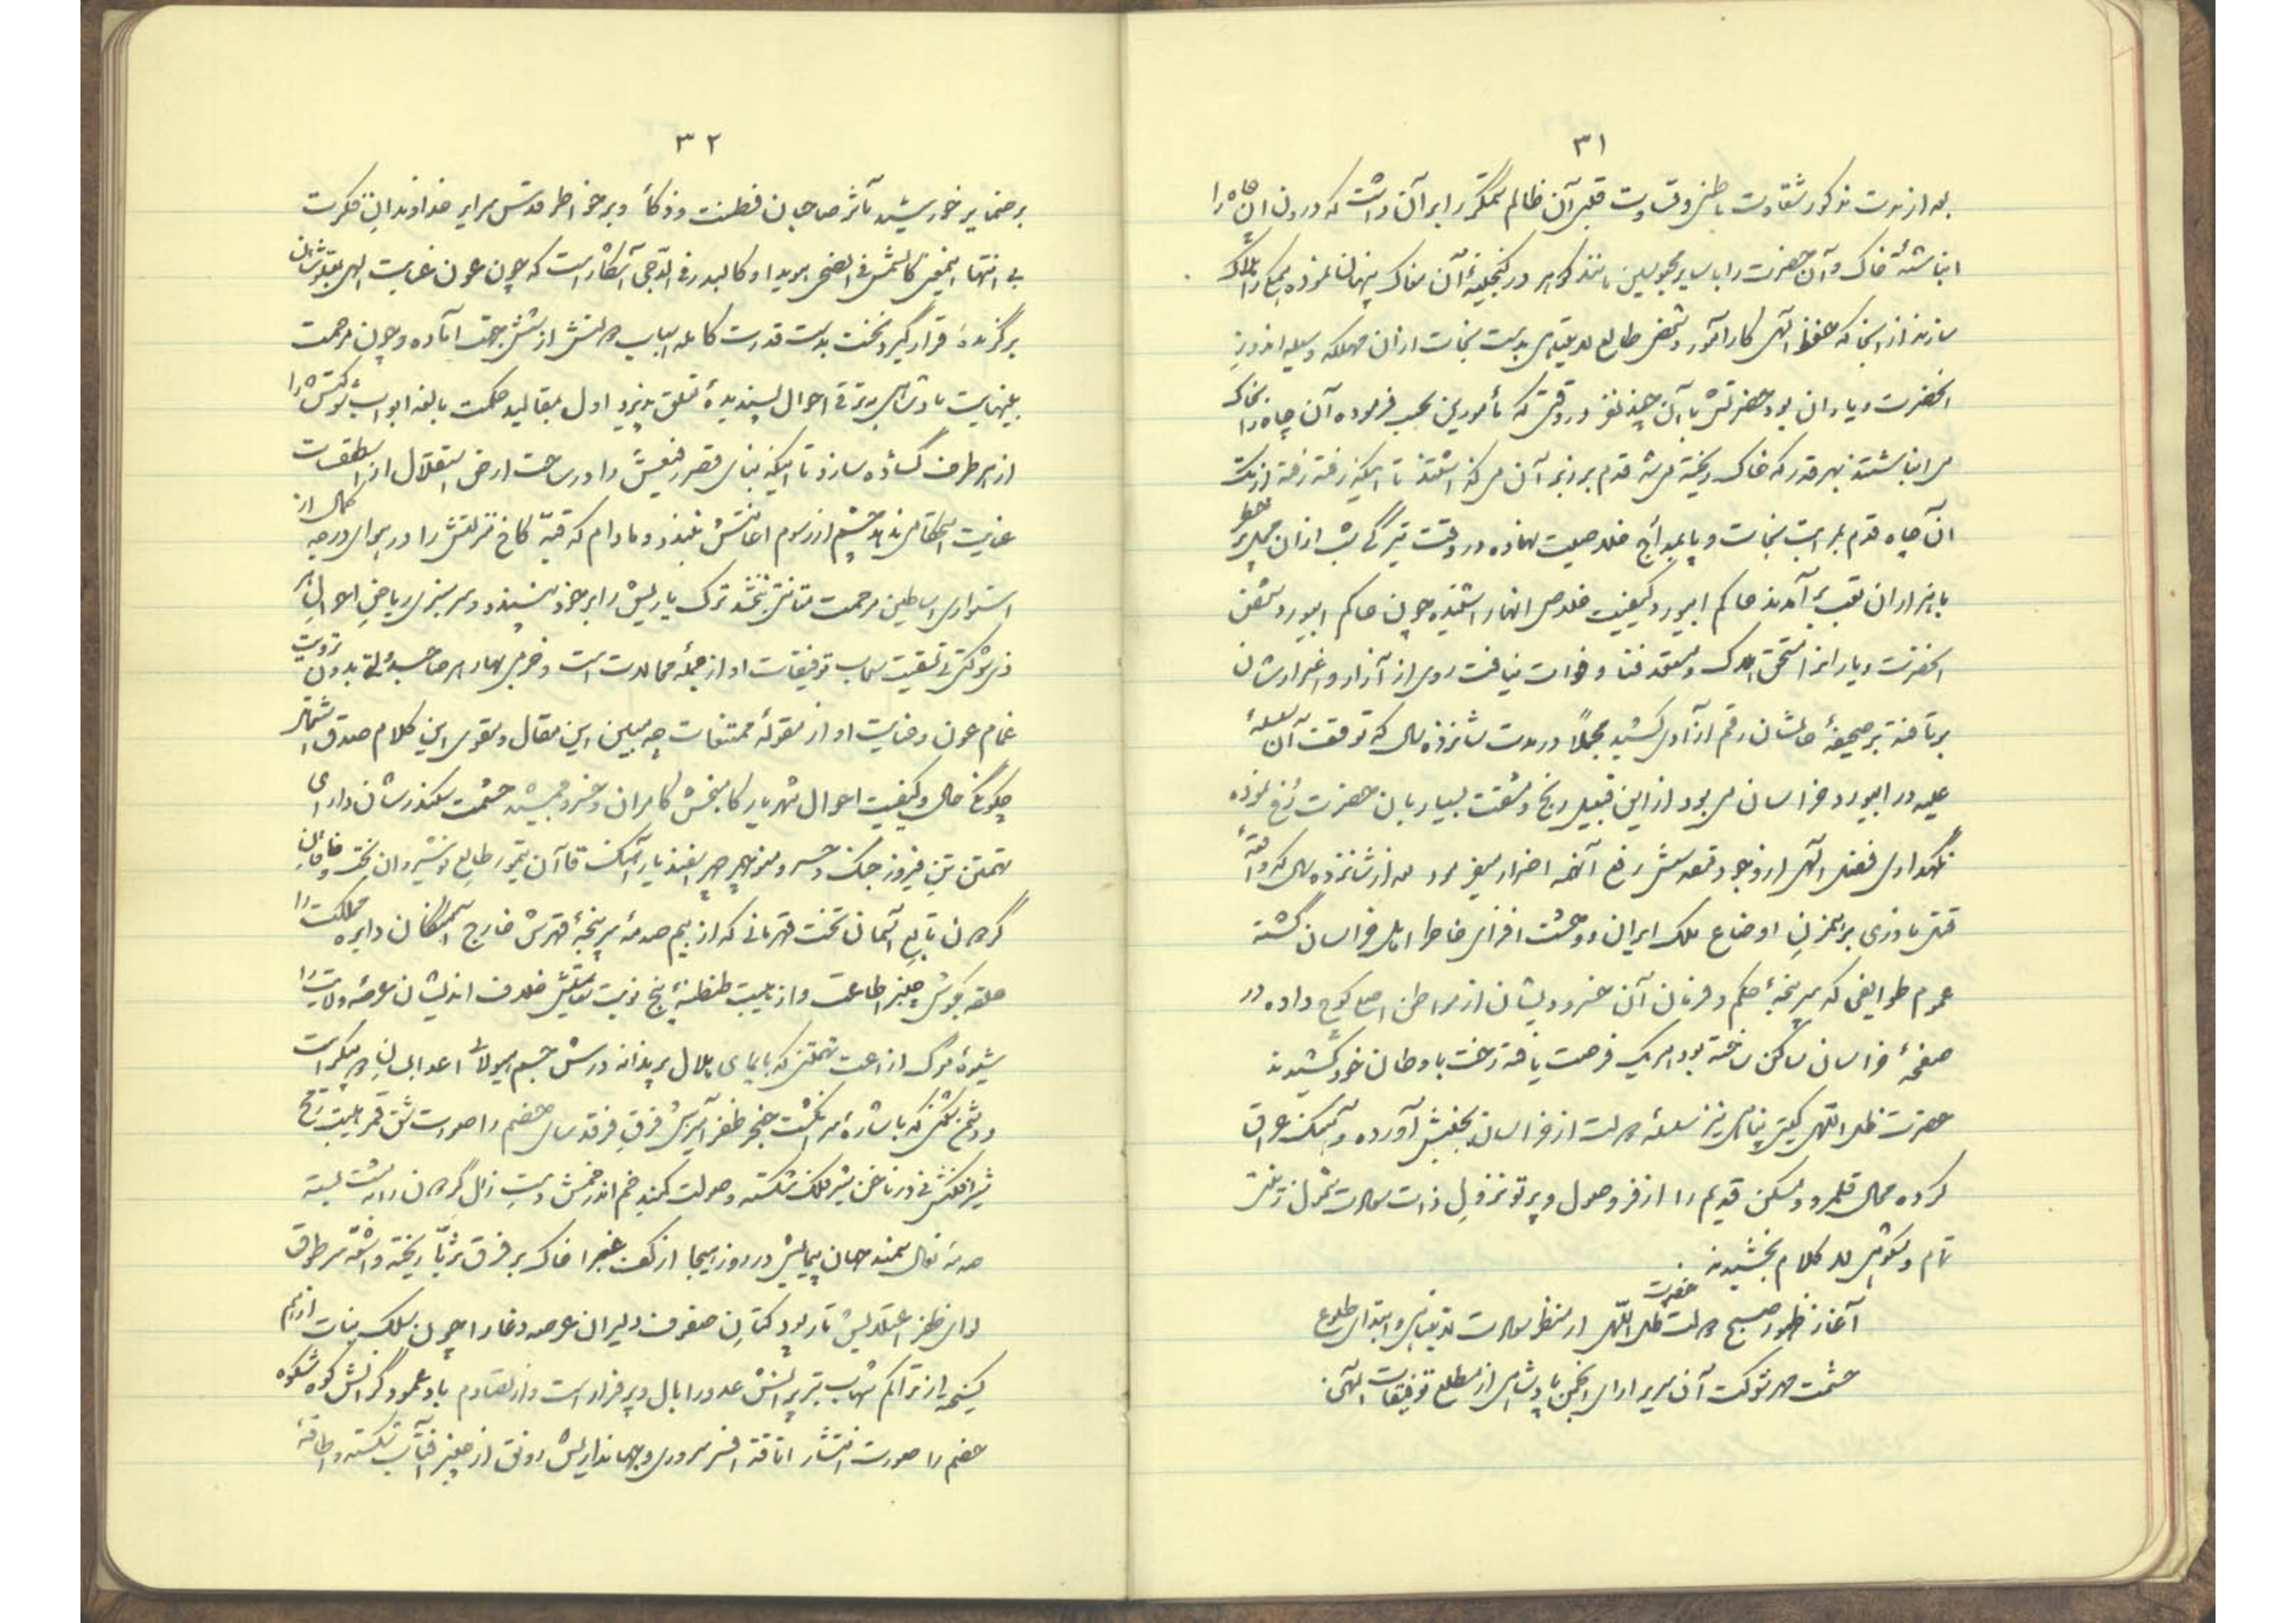 ۳۱
بعد از مدت مذکور شقاوت باطنی و قساوت قلبی آن ظالم ستمگر را بر آن داشت که درون آن چاه را
انباشتهٔ خاک و آن حضرت را با سایر محبوسین مانند گوهر در گنجینهٔ آن مغاک پنهان نموده همگی را هلاک
سازند از آنجا که حفظ الهی کارآموز و شخص طالع بدیعتی بدست نجات از آن مهلکه وسیله اندوز
آنحضرت و یاران بود حضرتش با آن چند نفر در وقتی که مأمورین بحسب فرموده آن چاه را بخاک
می انباشتند بهر قدر که خاک ریخته میشد قدم بر زبر آن می گذاشتند تا اینکه رفته رفته از تک
آن چاه قدم بر لب نجات و پا بمدارج خلاصیت نهاده در وقت تیرگی شب از آن محل پر خطر
با هزاران تعب برآمدند حاکم ابیورد کیفیت خلاصی ایشان را شنیده چون حاکم ابیورد شخص
آنحضرت و یارانرا مستحق هلاک و مستعد فنا و فوات نیافت روی از آزار و اضرارشان
برتافته بر صحیفهٔ حالشان رقم آزادی کشید مجملاً در مدت شانزده سال که توقف آن سلسلهٔ
علیه در ابیورد خراسان می بود از این قبیل رنج و مشقت بسیار بان حضرت رخ نموده
نگهداری فضل الهی از وجود قدسیش رفع آنهمه اضرار میفرمود بعد از شانزده سال که واقعهٔ
قتل نادری بر همزن اوضاع ملک ایران و وحشت افزای خاطر اهل خراسان گشته
عموم طوایفی که سرپنجهٔ حکم و فرمان آن خسرو ایشان از مواطن اصلی کوچ داده در
صفحهٔ خراسان ساکن ساخته بود هر یک فرصت یافته رخت باوطان خود کشیدند
حضرت ظل اللهی گیتی پناهی نیز سلسلهٔ دولت از خراسان بجنبش آورده و آهنگ عراق
کرده محال قلمرو و مسکن قدیم را از فر وصول و پرتو نزول ذات سعادت شمول زینت
تام و شکوهی لا کلام بخشیدند
آغاز ظهور صبح دولت حضرت ظل اللهی از منظر سعادت بدیعیات و ابتدای طلوع
حشمت مهر شوکت آن سریر آرای انجمن پادشاهی از مطلع توفیقات الهی.
۳۲
بر ضمایر خورشید مآثر صاحبان فطنت و ذکاء و بر خواطر قدس سرایر خداوندان فکرت
بی انتها اینمعنی کالشمس فی الضحی هویدا و کالبدر فی الدجی آشکار است که چون عون عنایت الهی بتقویت شان
برگزیدهٔ قرار گیرد نخست بدست قدرت کامله اسباب دولتش از شش جهت آماده و چون مرحمت
بینهایت پادشاهی بترقی احوال پسندیدهٔ تعلق پذیرد اول بمقالید حکمت بالغه ابواب شوکتش را
از هر طرف گشاده سازد تا اینکه بنای قصر رفیعش را در ساحت ارض استقلال از اسطقسات
عنایت استحکام ندهد چشم از رسوم اعانتش نبندد و مادام که قبهٔ کاخ منزلتش را در هوای درجه کمال از
استواری اساطین مرحمت متانت نبخشد ترک یاریش را بر خود نپسندد و سرسبزی ریاض احوال هر
ذی شوکتی بی سقیت سحاب توفیقات او از جملهٔ محالات است و خرمی بهار هر صاحب دولتی بدون ترویت
غمام عون و عنایت او از مقولهٔ ممتنعات چه مبین این مقال و مقوی این کلام صدق اشتمال
چگونگی حال و کیفیت احوال شهریار کامبخش کامران و خسرو جمشید حشمت سکندر شان دارای
تهمتن تن فیروز جنگ خسرو منوچهر چهر اسفندیار آهنگ قاآن تیمور طالع نوشیروان بخت خاقان
گردون تابع آسمان تخت قهرمانی که از بیم صدمهٔ سرپنجهٔ قهرش خارج آهنگان دایره مملکت را
حلقه بگوش چنبر اطاعت و از هیبت طنطنهٔ پنج نوبت سلطنتش خلاف اندیشان عرصهٔ ولایت را
شیوهٔ ترک نزاعت تهمتنی که بایمای هلال پرندانه درش جسم هیولای اعدا بی ان پیکر است
و دشمن شکنی که باشارهٔ سر انگشت خنجر ظفر آیینش فرق فرقدسای خصم را صورت شق قمر هیبت رمح
شیر افکنش نی در ناخن شیر فلک شکسته و صولت کمند خم اندر خمش دست زال گردون را به پشت بسته
صدمهٔ نعال سمند جهان پیمایش در روز هیجا از کف غبرا خاک بر فرق ثریا ریخته و اشقهٔ سر طوق
لوای ظفر اعتلایش تار پود کتان صفوف دلیران عرصه دغا را چون سلک بنات از هم
گسیخته از تراکم شهاب تیر پر آتشش عدو را بال و پر فرار است و از تصادم باد عمود گرانش کوه شکوه
خصم را صورت انتشار اتاقهٔ افسر سروری و جهاندارایش رونق از چنبر آفتاب شکسته و طاقهٔ